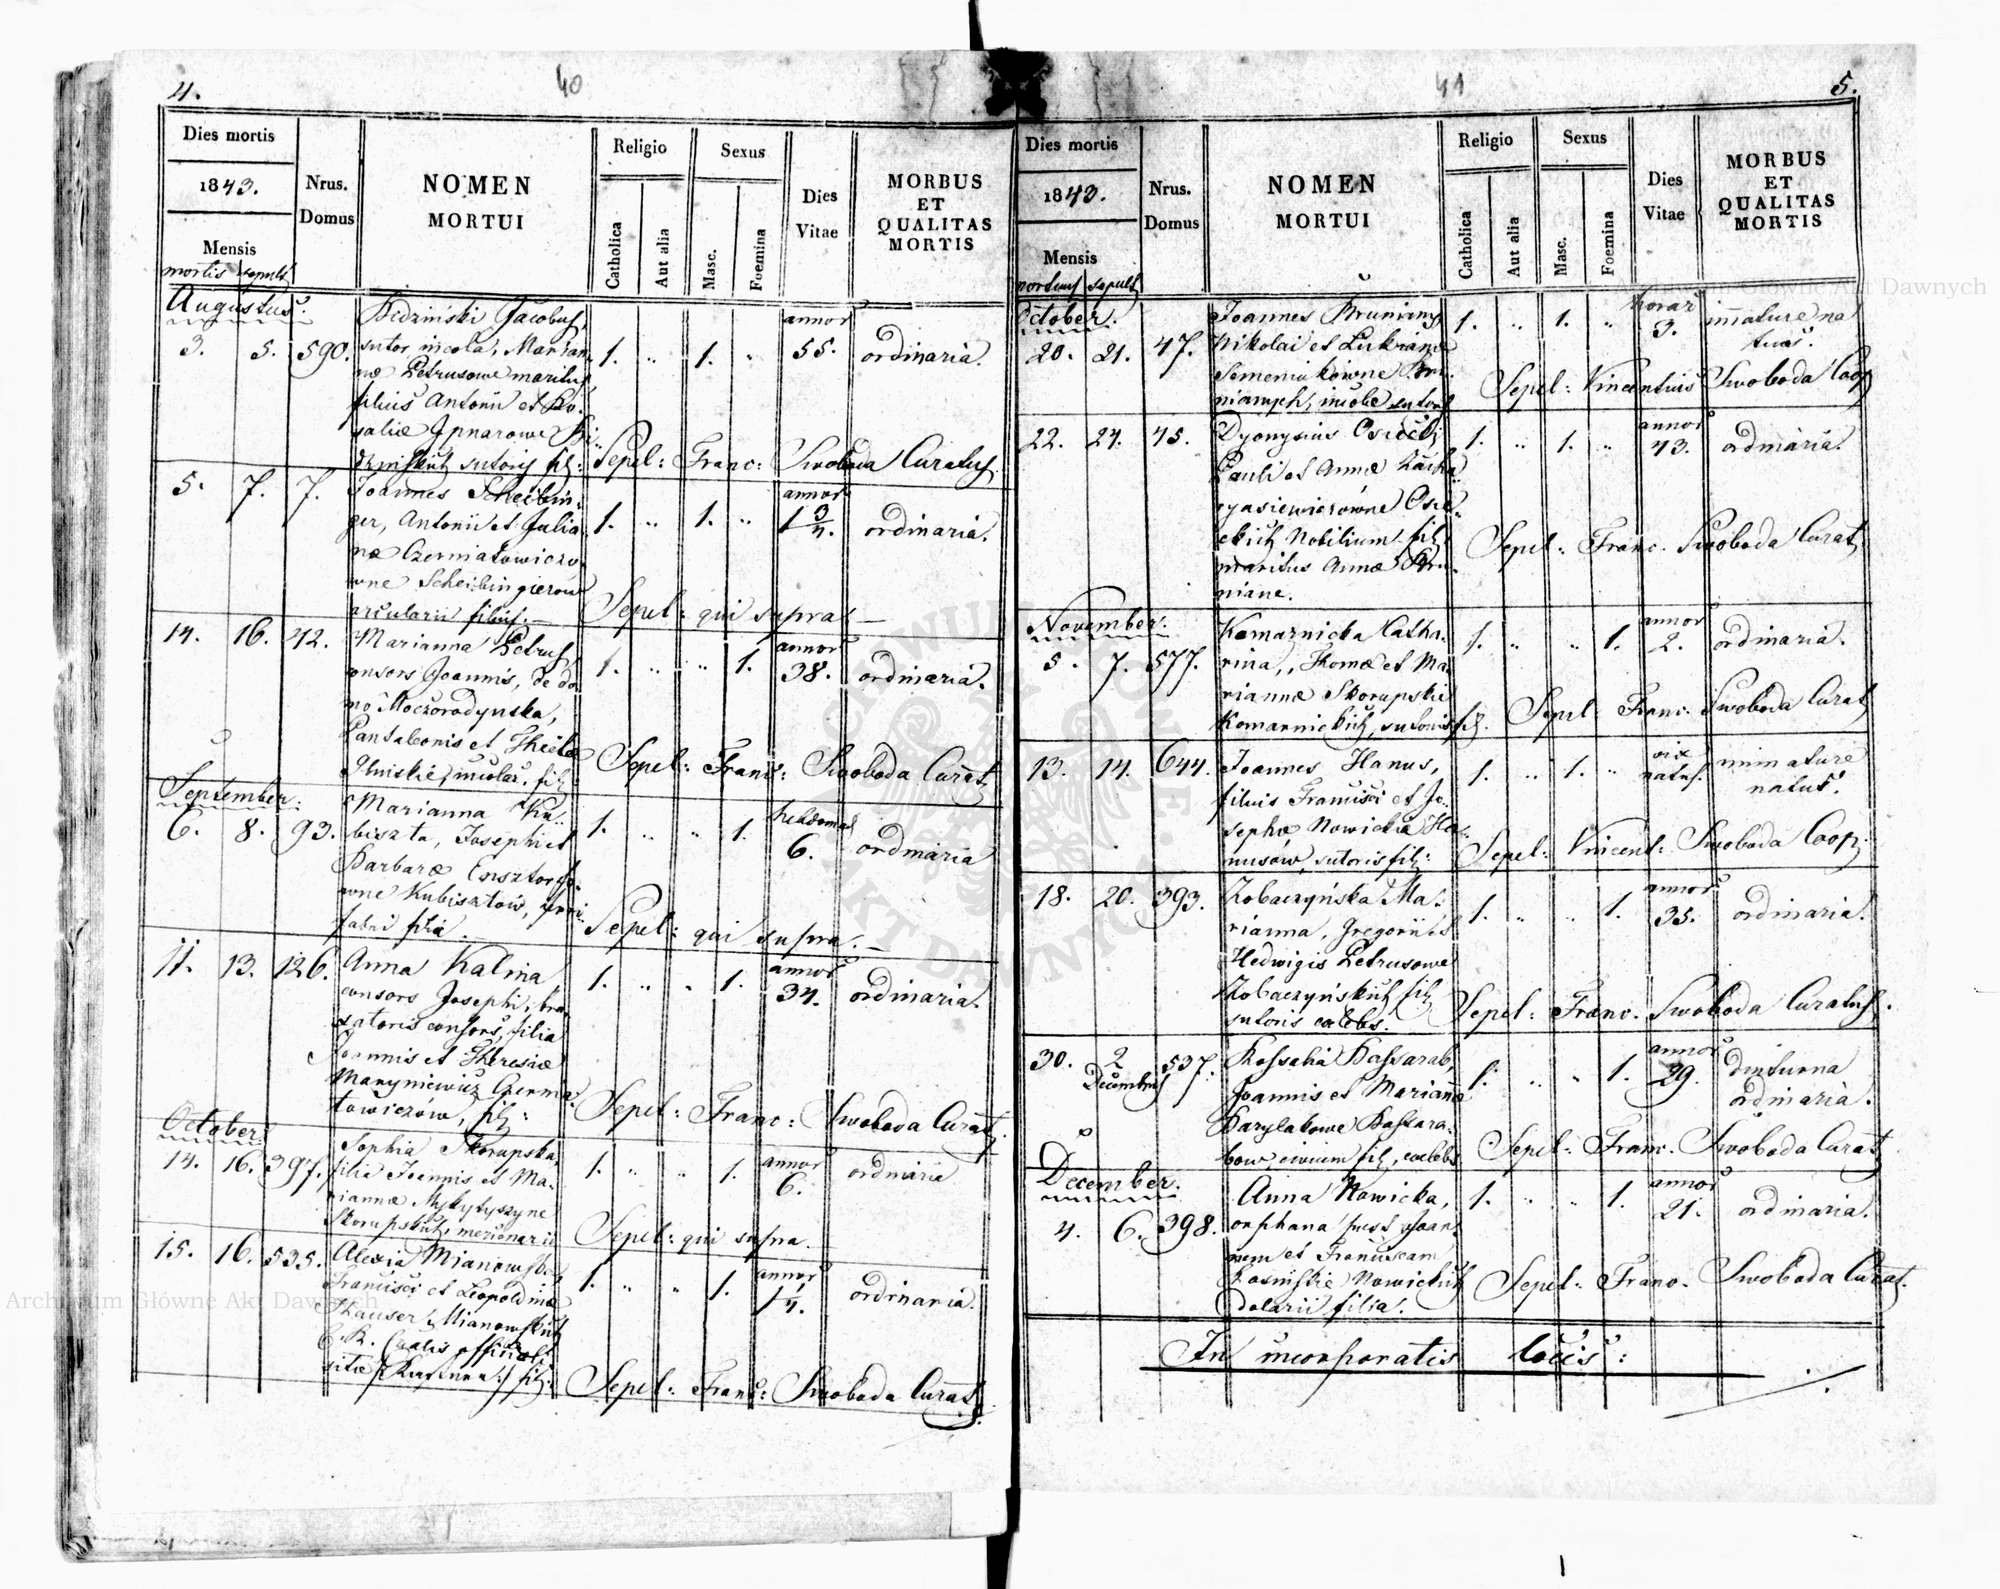 4.
40
Dies mortis
1843.
Mensis
mortis sepult
Nrus.
Domus
NOMEN
MORTUI
Religio
Catholica
Aut alia
Sexus
Masc.
Foemina
Dies
Vitae
MORBUS
ET
QUALITAS
MORTIS
Augustus.
3. 5. 590.
Bidziński Jacobus,
sutor incola, Marian-
næ Petrusowe maritus
filius Antonii et Ro-
saliæ
sutoris fil:
1. „ 1. „
annor
55.
ordinaria.
Sepel: Franc: Swoboda Curatus.
5. 7. 7.
Joannes Scheibin-
ger, Antonii et Julia-
næ Czerniatowiczo-
wne Scheibingierów
arcularii filius.
1. „ 1. „
annor
1 3/4.
ordinaria.
Sepel: qui supra. —
14. 16. 42.
Marianna Petrus,
consors Joannis, de do-
mo Moczorodynska,
Pantaleonis et Theclæ
incolar. fil:
1. „ „ 1.
annor
38.
ordinaria.
Sepel: Franc: Swoboda Curat.
September.
6. 8. 93.
Marianna Ku-
biszta, Josephi et
Barbaræ
wne Kubisztów,
fabri filia.
1. „ „ 1.
hebdomad
6.
ordinaria
Sepel: qui supra. —
11. 13. 126.
Anna Kalina
consors Josephi,
consors, filia
Joannis et Theresiæ
Maryniewicz Czernia-
towiczów, fil:
1. „ „ 1.
annor
34.
ordinaria.
Sepel: Franc: Swoboda Curat.
October.
14. 16. 397.
Sophia Skorupska,
filia Joannis et Ma-
riannæ Mykytyszyne
Skorupskich, mercenarii
1. „ „ 1.
annor
6.
ordinaria
Sepel: qui supra.
15. 16. 535.
Alexia Mianowska
Francisci et Leopoldinæ
Thauser, Mianowskich
C. R.
fil:
1. „ „ 1.
annor
1/4.
ordinaria.
Sepel: Franc: Swoboda Curat.
41
5.
Dies mortis
1843.
Mensis
mortuus sepult
Nrus.
Domus
NOMEN
MORTUI
Religio
Catholica
Aut alia
Sexus
Masc.
Foemina
Dies
Vitae
MORBUS
ET
QUALITAS
MORTIS
October.
20. 21. 47.
Joannes
Nikolai et
incolæ sutoris
1. „ 1. „
horar
3.
immature na
tus.
Sepel: Vincentius Swoboda Coop
22. 24. 45.
Dyonysius Osiecki
Pauli et Annæ Zacha-
ryasiewiczówne Osie-
ckich Nobilium fil:
maritus Annæ Bru-
niane.
1. „ 1. „
annor
43.
ordinaria.
Sepel: Franc. Swoboda Curat.
November.
5. 7. 577.
Komarnicka Catha-
rina, Thomæ et Ma-
riannæ Skorupskie
Komarnickich, sutoris fil.
1. „ „ 1.
annor
2.
ordinaria.
Sepel: Franc. Swoboda Curat
13. 14. 644.
Joannes Hanus,
filius Francisci et Jo-
sephæ Nowickie Ha-
nusów, sutoris fil:
1. „ 1. „
vix
natus.
immature
natus.
Sepel: Vincent: Swoboda Coop.
18. 20. 393.
Zobaczyńska Ma-
rianna, Gregorii et
Hedwigis Petrusowe
Zobaczyńskich fil
sutoris cælebs.
1. „ „ 1.
annor
35.
ordinaria.
Sepel: Franc. Swoboda Curatus.
30. 2 Decembris 537.
Rossalia Bassarab,
Joannis et Mariannæ
Barylakowe Bassara-
bow, civium fil, cælebs
1. „ „ 1.
annor
29.
diuturna
ordinaria.
Sepel: Franc. Swoboda Curat.
December.
4. 6. 398.
Anna Nowicka,
orphana post Joan-
nem et Franciscam
Nowickich
dolarii filia.
1. „ „ 1.
annor
21.
ordinaria.
Sepel: Franc. Swoboda Curat.
In incorporatis locis:
Archiwum Główne Akt Dawnych
Archiwum Główne Akt Dawnych
ARCHIWUM GŁÓWNE AKT DAWNYCH